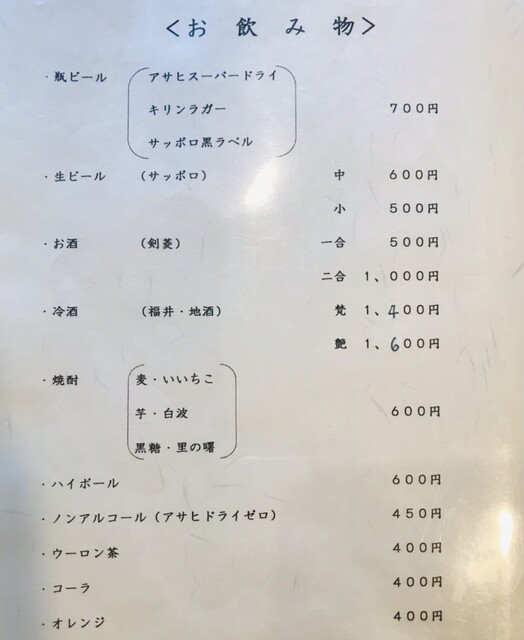 ＜お飲み物＞
・瓶ビール （アサヒスーパードライ
キリンラガー ７００円
サッポロ黒ラベル）
・生ビール （サッポロ） 中 ６００円
小 ５００円
・お酒 （剣菱） 一合 ５００円
二合 １、０００円
・冷酒 （福井・地酒） 梵 １、４００円
艶 １、６００円
・焼酎 （麦・いいちこ
芋・白波 ６００円
黒糖・里の曙）
・ハイボール ６００円
・ノンアルコール（アサヒドライゼロ） ４５０円
・ウーロン茶 ４００円
・コーラ ４００円
・オレンジ ４００円